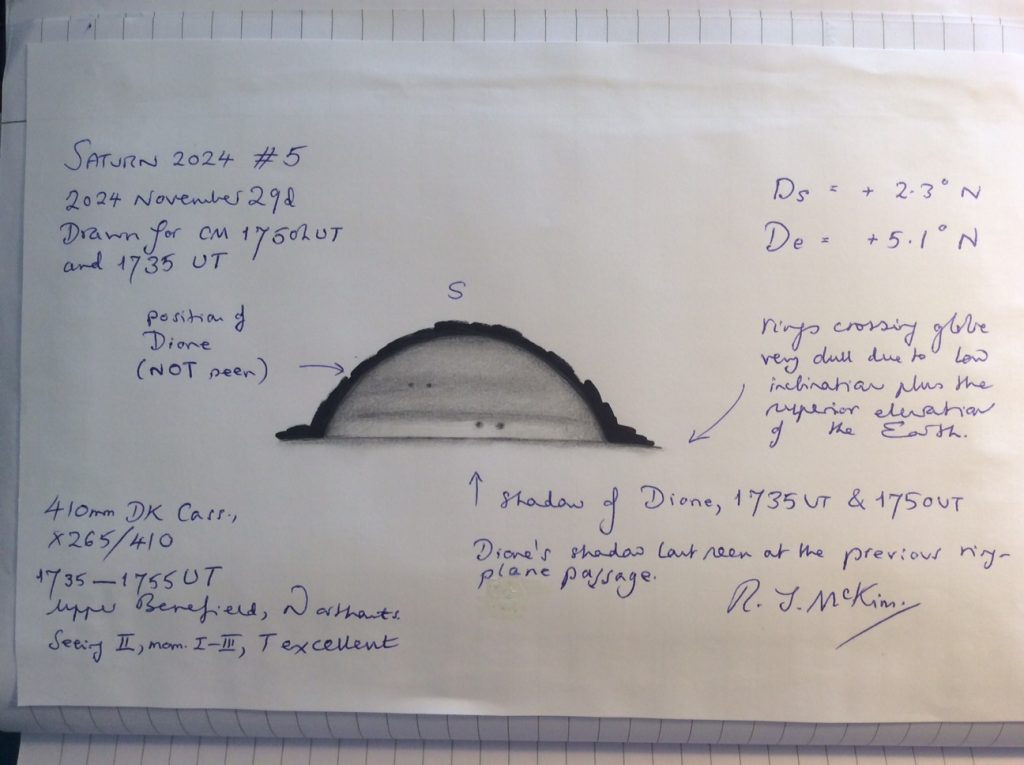 SATURN 2024 #5
2024 November 29d
Drawn for CM 1750h UT
and 1735 UT
Ds = + 2.3° N
De = +5.1° N
S
position of
Dione
(NOT seen)
rings crossing globe
very dull due to low
inclination plus the
superior elevation
of the Earth.
410mm DK Cass.,
x265/410
1735—1755 UT
Upper Benefield, Northants.
Seeing II, mom. I-III, T excellent
shadow of Dione, 1735 UT & 1750 UT
Dione's shadow last seen at the previous ring-
plane passage.
R. J. McKim.